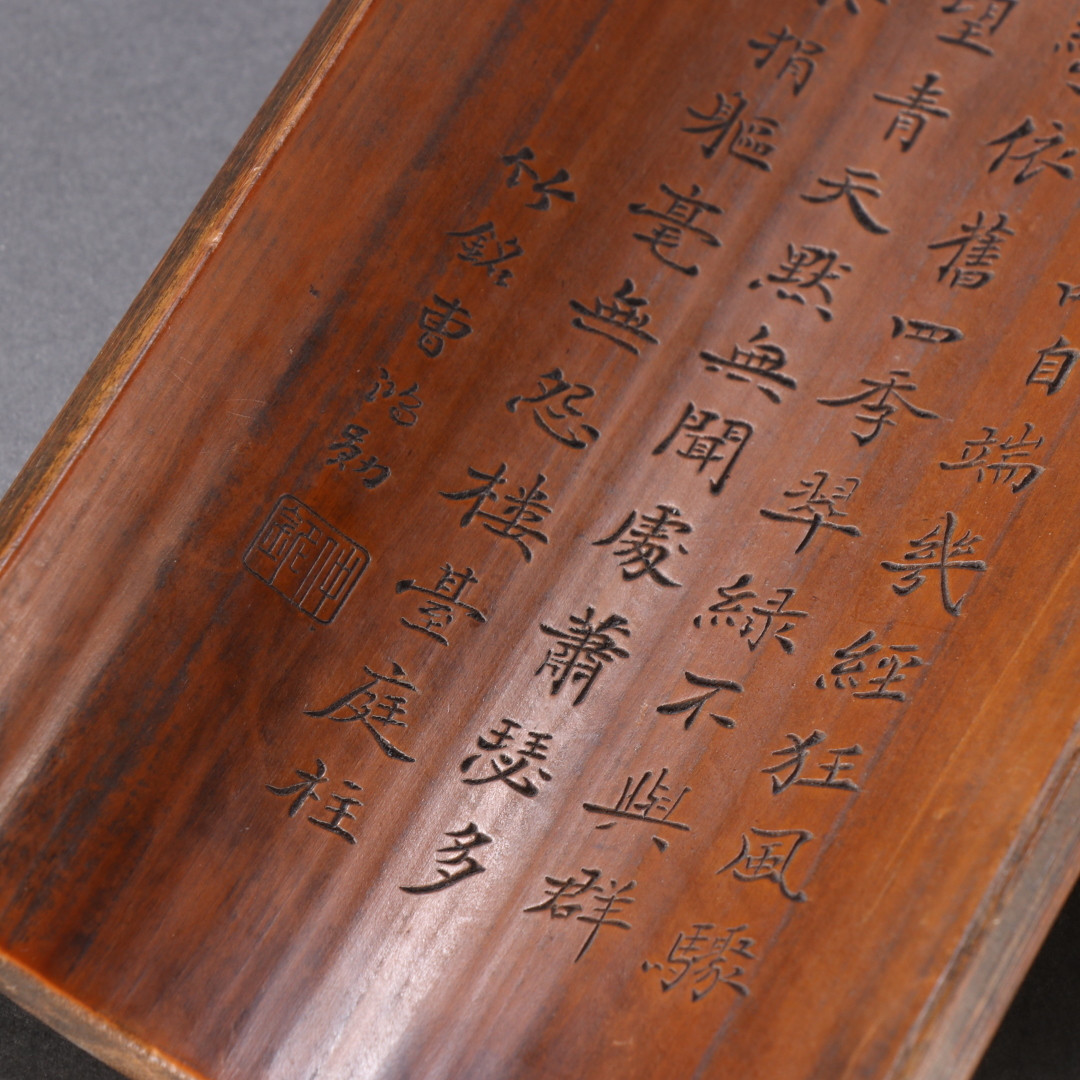 自端幾經狂風驟
依舊四季翠緑不與群
望青天默無聞處蕭瑟多
捐軀毫無怨楼臺庭柱
竹銘曹治勛